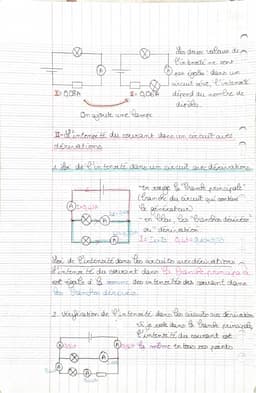 Les deux valeurs de
l'intensité ne sont
pas égales dans un
circuit série, l'intensité
dépend du nombre de
dipôles.
I = 0,08A
I = 0,06A
On ajoute une lampe
II- L'intensité du courant dans un circuit avec
dérivations
1. Loi de l'intensité dans un circuit avec dérivations
- en rouge la branche principale
(branche du circuit qui contient
le générateur)
- en bleu, les branches dérivées
ou dérivation
Loi de l'intensité dans les circuits avec dérivations
L'intensité du courant dans la branche principale
est égale à la somme des intensités des courants dans
les branches dérivées.
2. Vérification de l'intensité dans les circuits avec dérivation
dans la branche principale,
l'intensité du courant est
la même en tous ses points